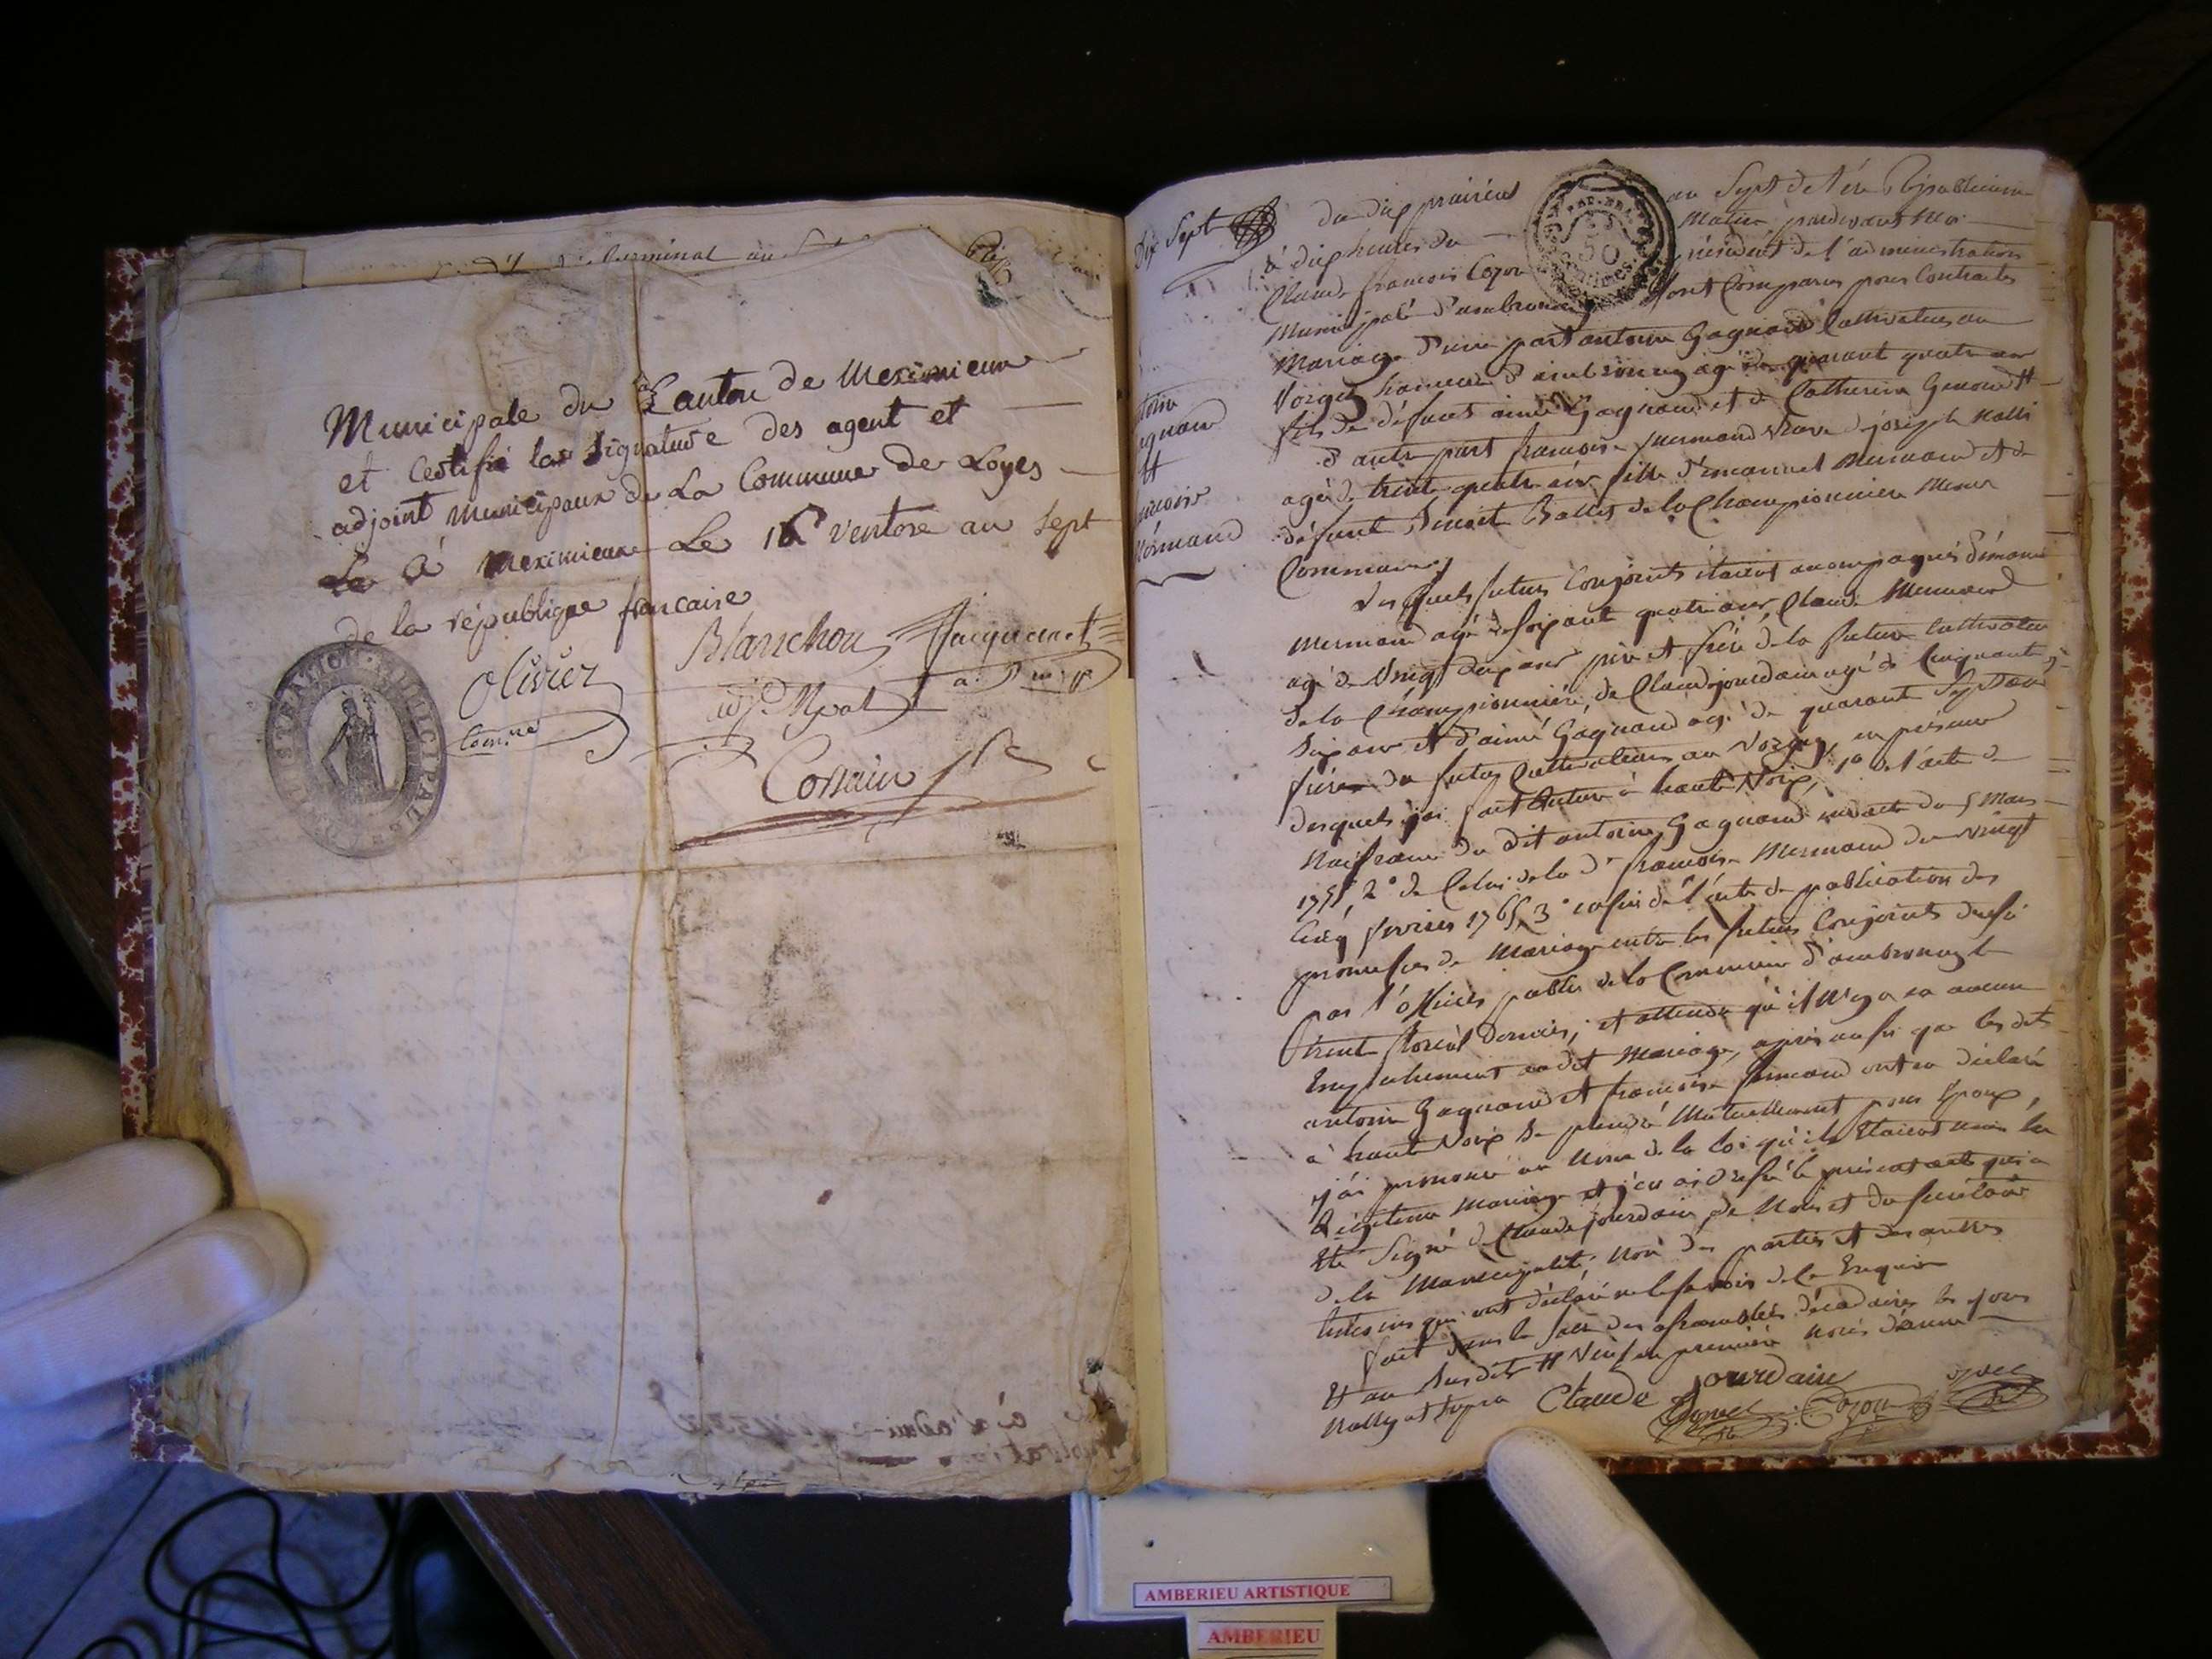 Municipale du Canton de Meximieux
et Certifié la Signature des agent et
adjoint Municipaux de La Commune de Loyes
à Meximieux Le 16 Ventose an sept
de la république francaise
Olivier
Comre
Blanchon
Jacquemet
adj. Mpal
Cossain
ADMINISTRATION MUNICIPALE
Dix Sept
du dix prairial
an Sept de l'ère Républicaine
à dix heures du
Matin pardevant Moi
Claude francois Cozon
président de l'administration
Municipale d'ambronay
Sont Comparus pour Contracter
50
CENTIMES
Mariage d'une part antoine Gagnand Cultivateur au
Vorgey hameau d'ambronay agé de quarant quatre ans
fils de défunt aimé Gagnand et de Catherine
d'autre part francoise Mermand Veuve de joseph
agée de trente quatre ans fille d'emanuel Mermand et de
défunte Benoite Ballet de la Championniere Meme
Commune
Les quels futurs Conjoints étaient accompagnés d'émanuel
Mermand agé de soixante quatre ans, Claude Mermand
agé de Vingt deux ans père et frère de la future Cultivateurs
de la Championniere, de Claude jourdain agé de Cinquante
Six ans et d'aimé Gagnand agé de quarant Sept ans
frère du futur Cultivateurs au Vorgey, en présence
desquels j'ai fait lecture à haute Voix, 1° de l'acte de
Naissance du dit antoine Gagnand en date du 5 Mars
1755, 2° de Celui de la de francoise Mermand du Vingt
Cinq fevrier 1765, 3° enfin de l'acte de publication des
promesses de Mariage entre les futurs Conjoints dressé
par l'officier public de la Commune d'ambronay le
trente floréal dernier, et attendu qu'il n'y a eu aucun
Empechement au dit Mariage, après aussi que les dits
antoine Gagnand et francoise Mermand ont eu déclaré
à haute Voix Se prendre Mutuellement pour Epoux,
j'ai prononcé au Nom de la Loi qu'ils Etaient unis en
Légitime Mariage et j'en ai dressé le présent acte qui a
Eté Signé de Claude jourdain, de Moi et du Secrétaire
de la Municipalité, Non des parties et des autres
témoins qui ont déclaré ne le savoir de ce Enquis
fait dans la Salle des assemblées décadaires les jour
Et an Susdits
Claude Jourdain
Cozon
antoine
gagnand
et
francoise
Mermand
AMBERIEU ARTISTIQUE
AMBERIEU